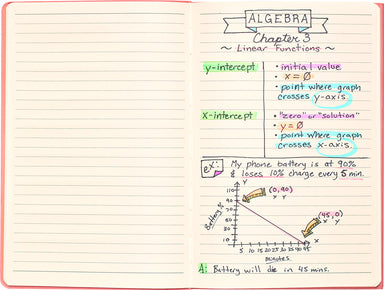 ALGEBRA
Chapter 3
~ Linear Functions ~
y-intercept
• initial value
• x = Ø
• point where graph
crosses y-axis
x-intercept
• "zero" or "solution"
• y = Ø
• point where graph
crosses x-axis
ex: My phone battery is at 90%
& loses 10% charge every 5 min.
Battery %
y
110
90
70
50
30
10
(0,90)
x y
(45,0)
x y
5 10 15 20 25 30 35 40 45
x
Minutes
A: Battery will die in 45 mins.